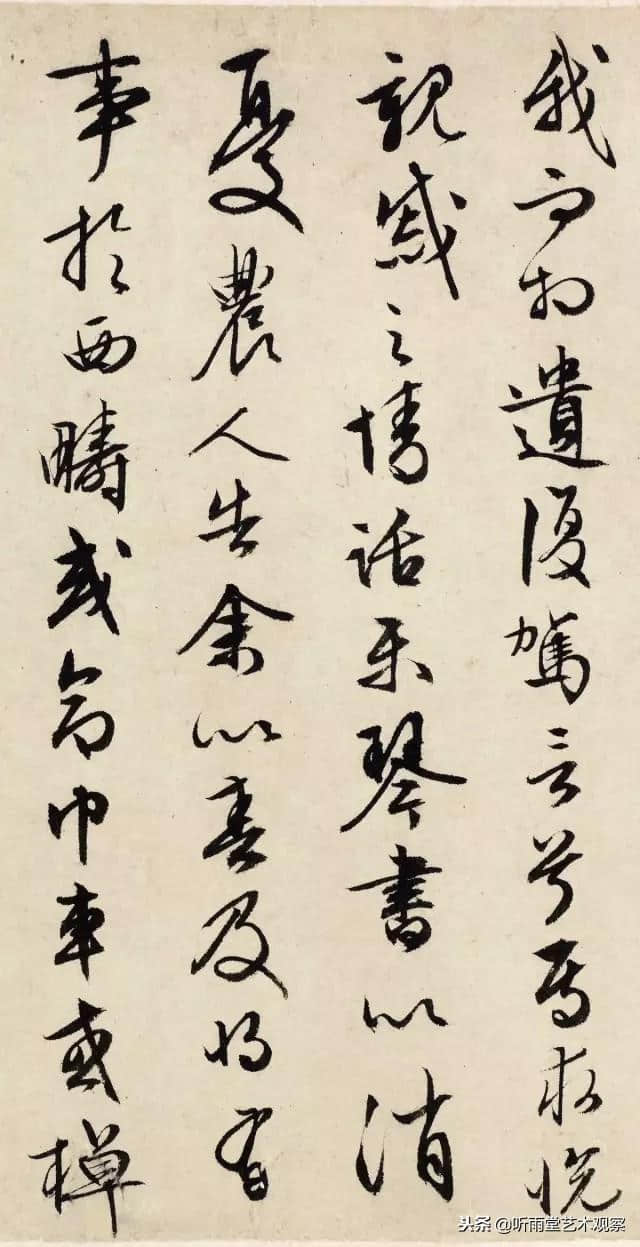 我而相遺復駕言兮焉求悅
親戚之情話樂琴書以消
憂農人告余以春及將有
事於西疇或命巾車或棹
头条 @听雨堂艺术观察